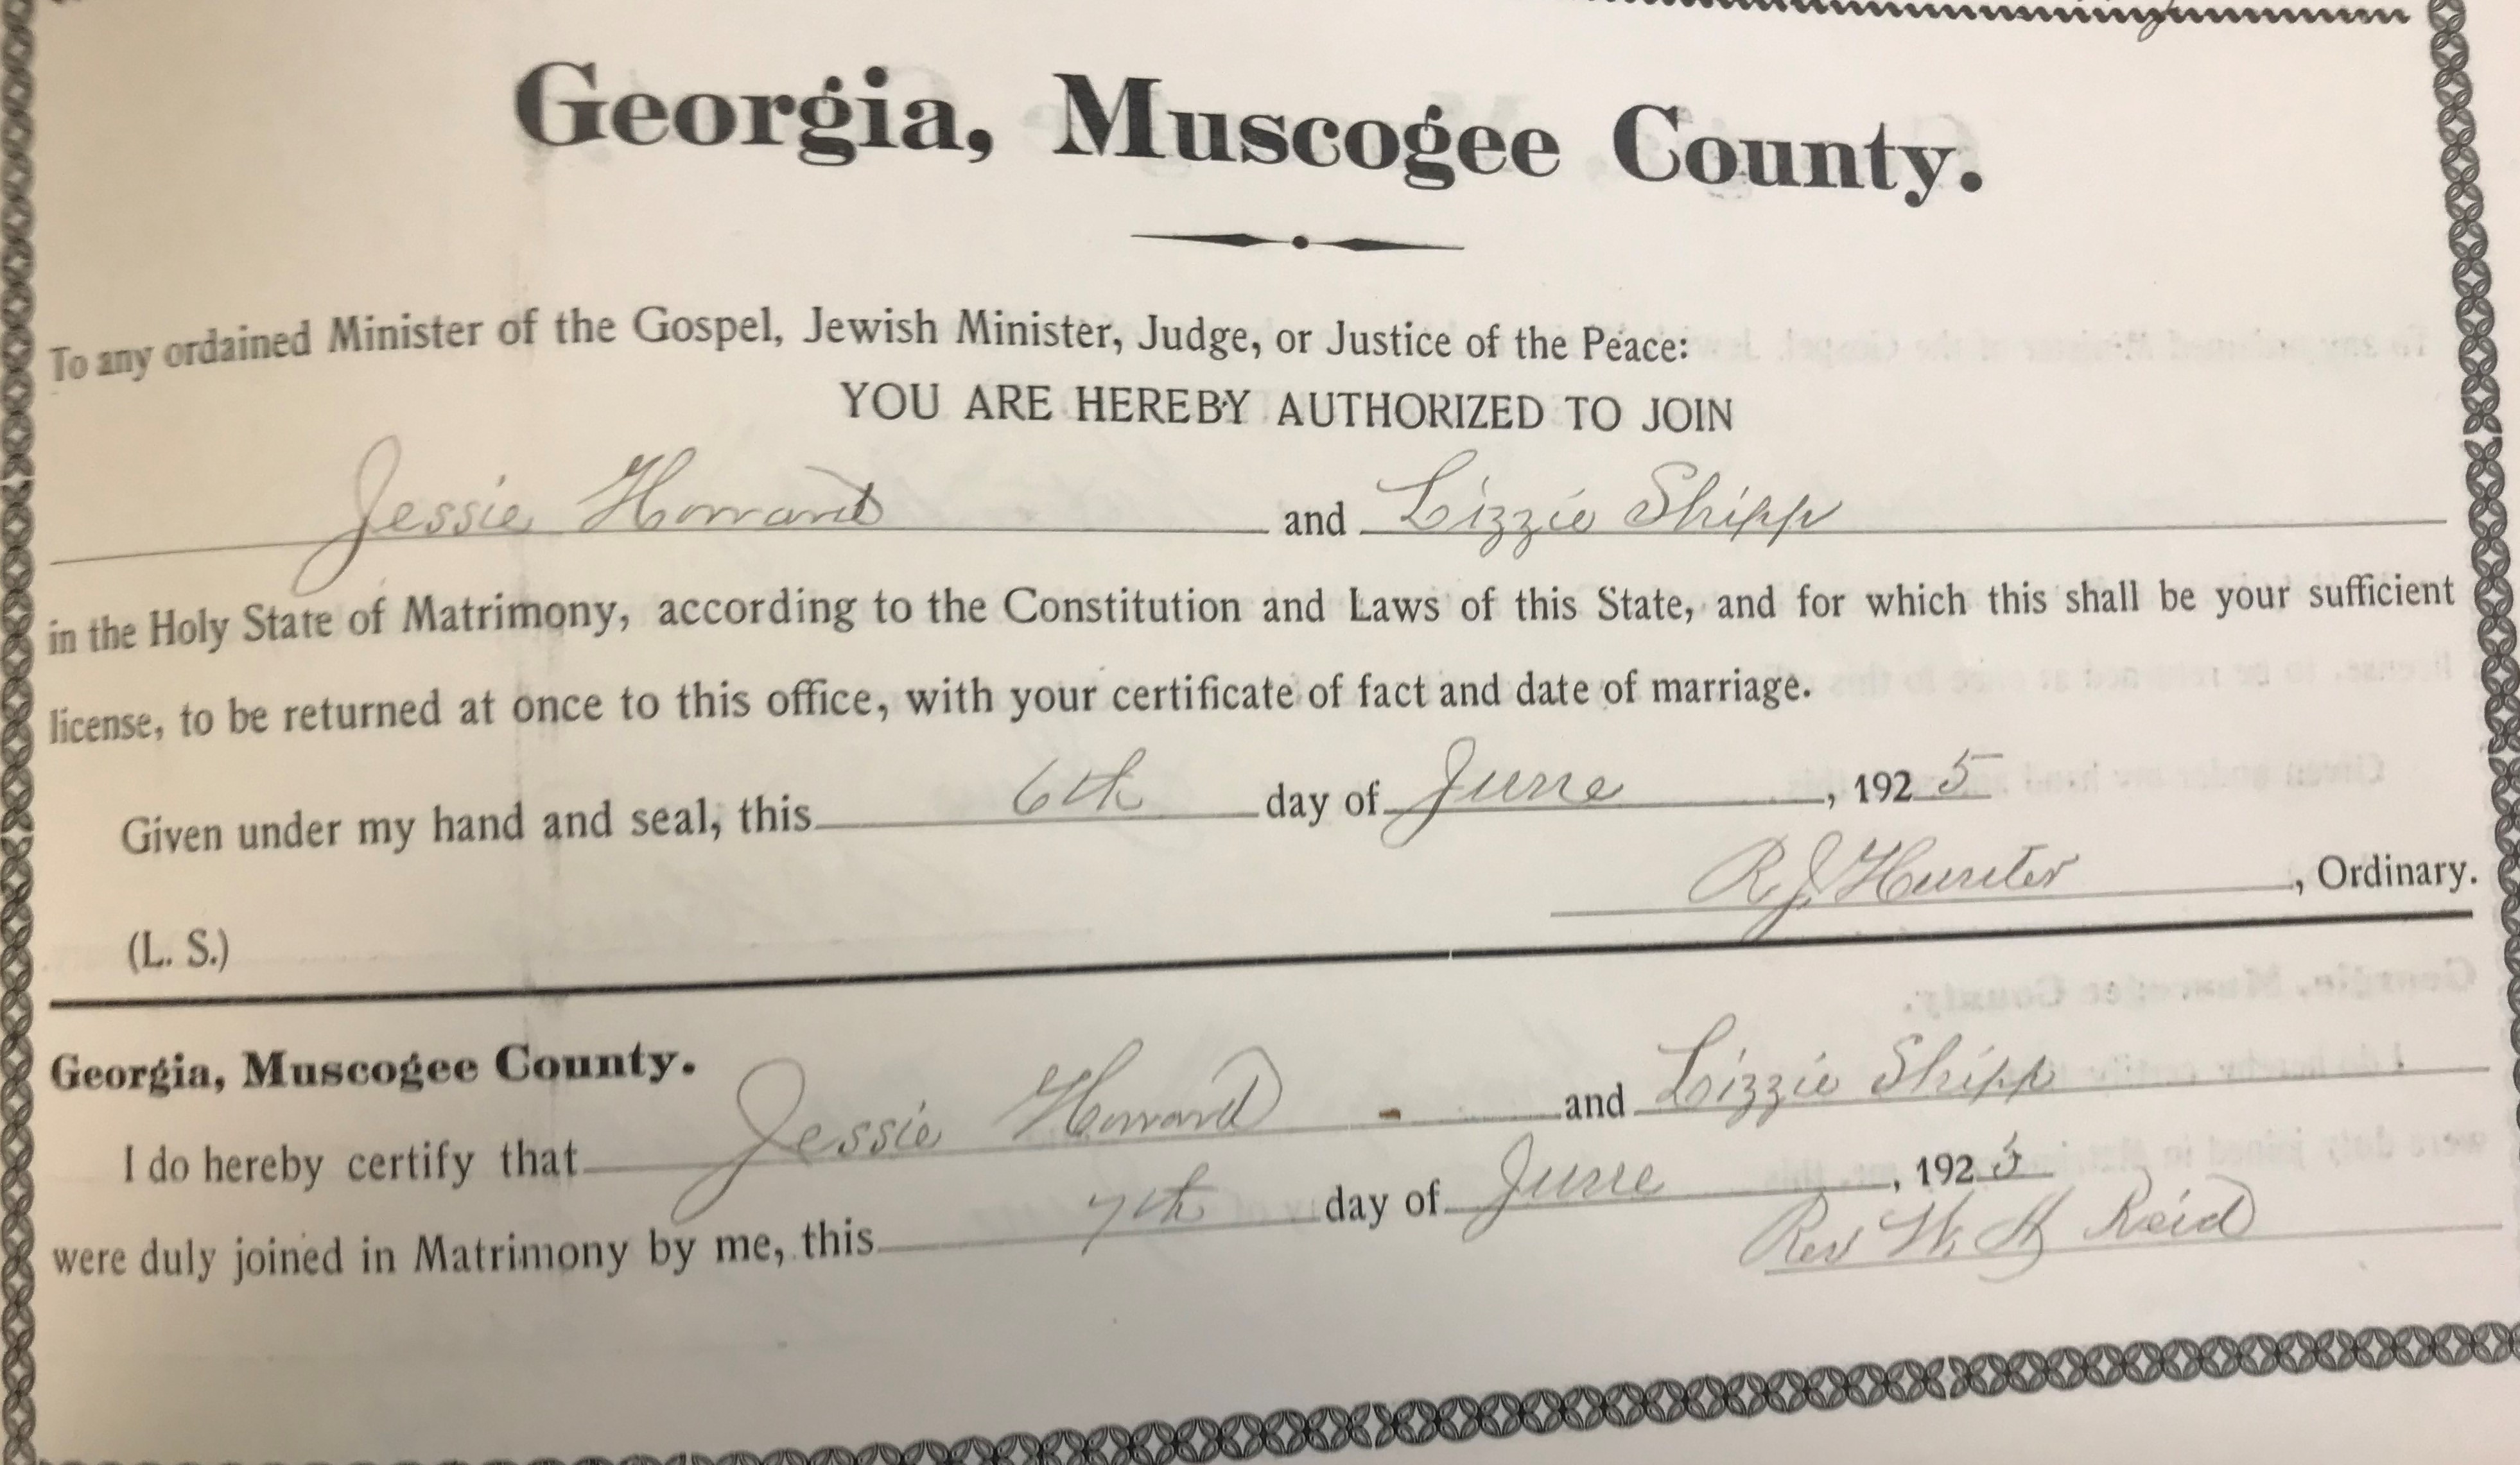 Georgia, Muscogee County.
To any ordained Minister of the Gospel, Jewish Minister, Judge, or Justice of the Peace:
YOU ARE HEREBY AUTHORIZED TO JOIN
Jessie Howard and Lizzie Shipp
in the Holy State of Matrimony, according to the Constitution and Laws of this State, and for which this shall be your sufficient
license, to be returned at once to this office, with your certificate of fact and date of marriage.
Given under my hand and seal, this 6th day of June, 1925
R. J. Hunter, Ordinary.
(L. S.)
Georgia, Muscogee County.
I do hereby certify that Jessie Howard - and Lizzie Shipp
were duly joined in Matrimony by me, this 7th day of June, 1925
Rev W. Reid